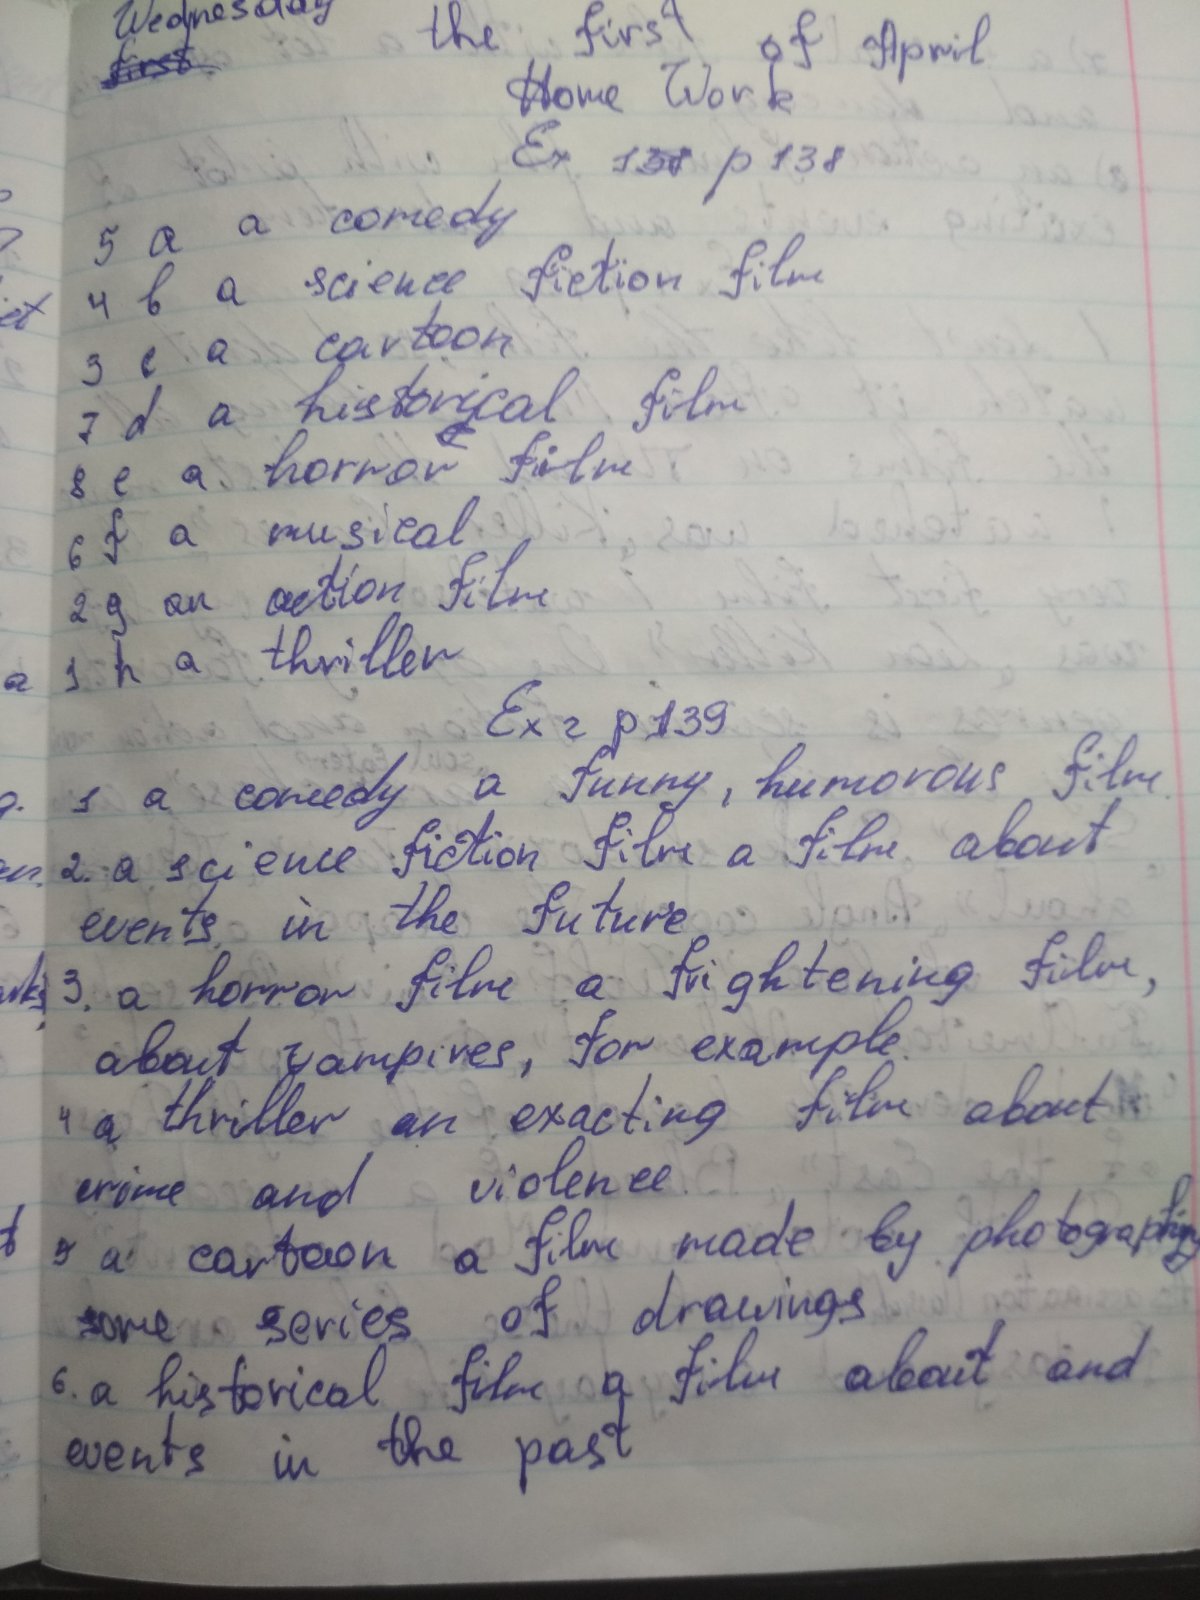 Wednesday
first
the first of April
Home Work
Ex 1 p 138
5 a a comedy
4 b a science fiction film
3 c a cartoon
7 d a historical film
8 e a horror film
6 f a musical
2 g an action film
1 h a thriller
Ex 2 p 139
1 a comedy a funny, humorous film
2. a science fiction film a film about
events in the future
3. a horror film a frightening film,
about vampires, for example.
4 a thriller an exacting film about
crime and violence.
5 a cartoon a film made by photographing
some series of drawings
6. a historical film a film about and
events in the past